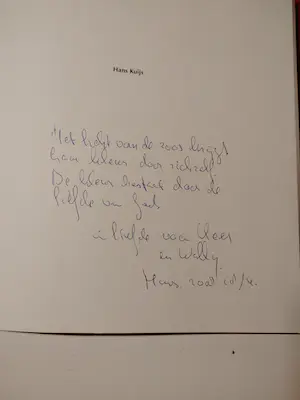 Hans Kuijs
Het lijf van de roos krijgt
haar kleur door zichzelf
De kleur bestaat door de
liefde van God
in liefde voor Kees
en Willy
Hans